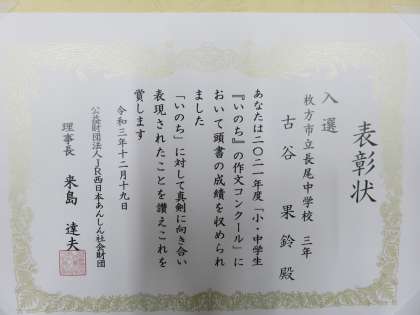 表彰状
入選
枚方市立長尾中学校 三年
古谷 果鈴 殿
あなたは二〇二一年度「小・中学生
『いのち』の作文コンクール」に
おいて頭書の成績を収められ
ました
「いのち」に対して真剣に向き合い
表現されたことを讃えこれを
賞します
令和三年十二月十九日
公益財団法人JR西日本あんしん社会財団
理事長 来島 達夫